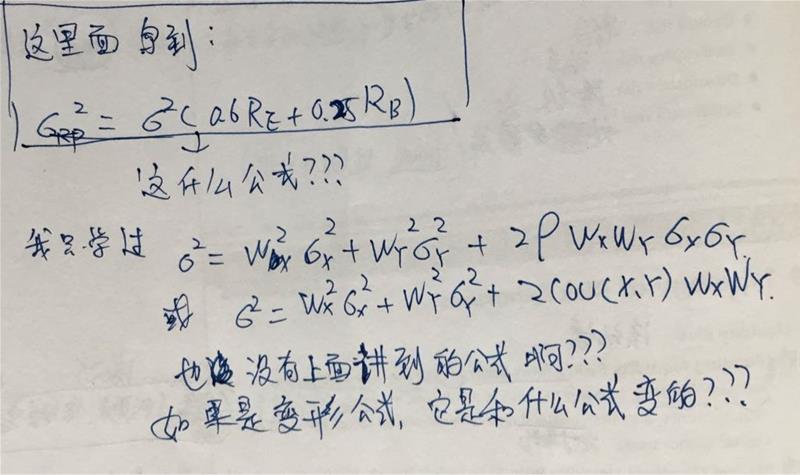 这里面 自到：
σ_RP² = σ²( 0.6 R_E + 0.25 R_B )
这什么公式???
我只学过 σ² = W_X² σ_X² + W_Y² σ_Y² + 2ρ W_X W_Y σ_X σ_Y.
或 σ² = W_X² σ_X² + W_Y² σ_Y² + 2COV(X,Y) W_X W_Y.
也没有上面讲到的公式啊???
如果是变形公式, 它是和什么公式变的???